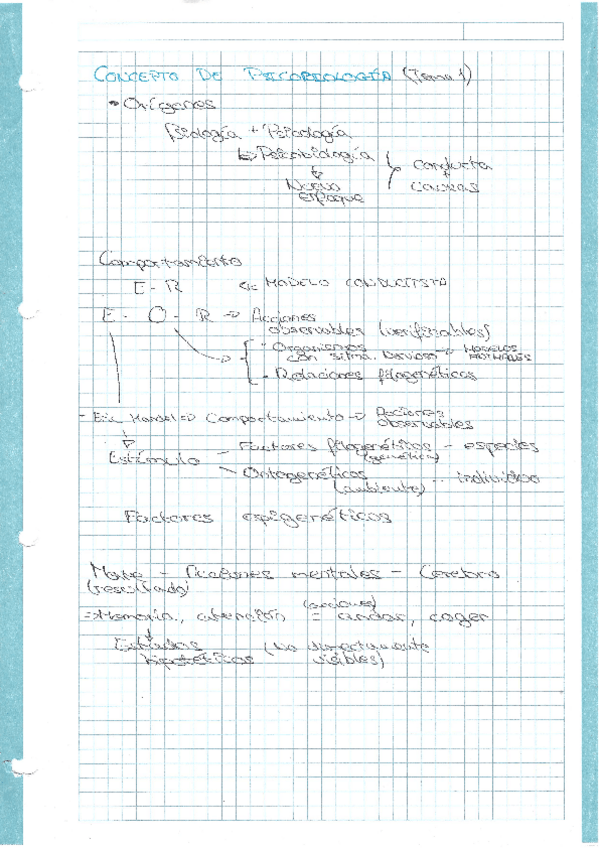 CONCEPTO DE PSICOBIOLOGÍA (Tema 1)
• Orígenes
Biología + Psicología
↳ Psicobiología conducta
↓ +
Nuevo causas
enfoque
Comportamiento
E - R ≪ MODELO CONDUCTISTA
E - O - R → Acciones
observables (verificables)
- Organismos → MODELOS
con sitma. nervioso ANIMALES
- Relaciones filogenéticas
Comportamiento → Acciones
observables
Estímulo - Factores filogenéticos - especies
(genética)
- Ontogenéticos -- individuo
(ambiente)
Factores epigenéticos
Mente - Acciones mentales - Cerebro
(resultado)
(acciones)
⇒ Memoria, atención = andar, coger
↓
Estados (No directamente
hipotéticos visibles)